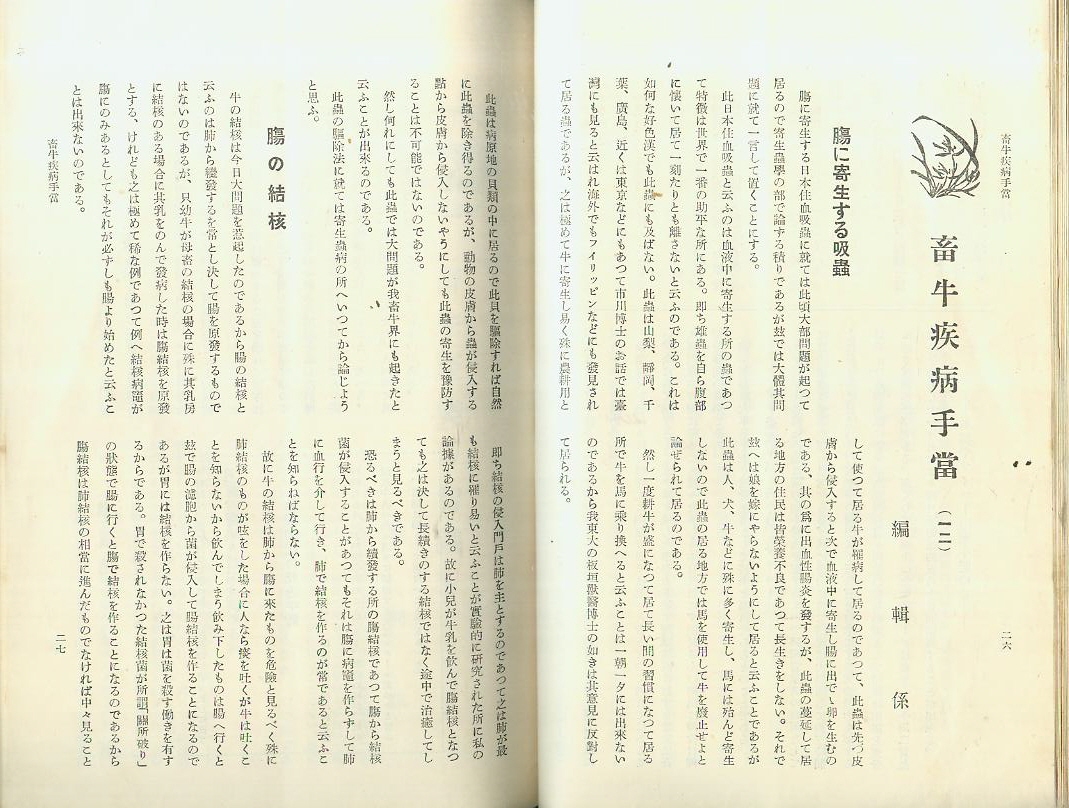 畜牛疾病手當
畜牛疾病手當(一二)
編輯係
二六
腸に寄生する吸蟲
腸に寄生する日本住血吸蟲に就ては此頃大部問題が起つて
居るので寄生蟲學の部で論ずる積りであるが玆では大體其問
題に就て一言して置くことにする。
此日本住血吸蟲と云ふのは血液中に寄生する所の蟲であつ
て特徴は世界で一番の助平な所にある。即ち雄蟲を自ら腹部
に懷いて居て一刻たりとも離さないと云ふのである。これは
如何な好色漢でも此蟲にも及ばない。此蟲は山梨、靜岡、千
葉、廣島、近くは東京などにもあつて市川博士のお話では臺
灣にも見ると云はれ海外でもフイリッピンなどにも發見され
て居る蟲であるが、之は極めて牛に寄生し易く殊に農耕用と
して使つて居る牛が罹病して居るのであつて、此蟲は先づ皮
膚から侵入すると次で血液中に寄生し腸に出でゝ卵を生むの
である、其の爲に出血性腸炎を發するが、此蟲の蔓延して居
る地方の住民は皆榮養不良であつて長生きをしない。それで
玆へは娘を嫁にやらないようにして居ると云ふことであるが
此蟲は人、犬、牛などに殊に多く寄生し、馬には殆んど寄生
しないので此蟲の居る地方では馬を使用して牛を廢止せよと
論ぜられて居るのである。
然し一度耕牛が盛になつて居て長い間の習慣になつて居る
所で牛を馬に乘り換へると云ふことは一朝一夕には出來ない
のであるから我東大の板垣獸醫博士の如きは其意見に反對し
て居られる。
此蟲は病原地の貝類の中に居るので此貝を驅除すれば自然
に此蟲を除き得るのであるが、動物の皮膚から蟲が侵入する
點から皮膚から侵入しないやうにしても此蟲の寄生を豫防す
ることは不可能ではないのである。
然し何れにしても此蟲では大問題が我畜牛界にも起きたと
云ふことが出來るのである。
此蟲の驅除法に就ては寄生蟲病の所へいつてから論じよう
と思ふ。
腸の結核
牛の結核は今日大問題を惹起したのであるから腸の結核と
云ふのは肺から續發するを常とし決して腸を原發するもので
はないのであるが、只幼牛が母畜の結核の場合に殊に其乳房
に結核のある場合に其乳をのんで發病した時は腸結核を原發
とする、けれども之は極めて稀な例であつて例へ結核病竈が
腸にのみあるとしてもそれが必ずしも腸より始めたと云ふこ
とは出來ないのである。
即ち結核の侵入門戶は肺を主とするのであつて之は肺が最
も結核に罹り易いと云ふことが實驗的に研究された所に私の
論據があるのである。故に小兒が牛乳を飮んで腸結核となつ
ても之は決して長續きのする結核ではなく途中で治癒してし
まうと見るべきである。
恐るべきは肺から續發する所の腸結核であつて腸から結核
菌が侵入することがあつてもそれは腸に病竈を作らずして
に血行を介して行き、肺で結核を作るのが常であると云ふこ
とを知らねばならない。
故に牛の結核は肺から腸に來たものを危險と見るべく殊に
肺結核のものが咳をした場合に人なら痰を吐くが牛は吐くこ
とを知らないから飮んでしまう飮み下したものは腸へ行くと
玆で腸の濾胞から菌が侵入して腸結核を作ることになるので
あるが胃には結核を作らない。之は胃は菌を殺す働きを有す
るからである。胃で殺されなかつた結核菌が所謂「關所破り」
の狀態で腸に行くと腸で結核を作ることになるのであるから
腸結核は肺結核の相當に進んだものでなければ中々見ること
畜牛疾病手當
二七